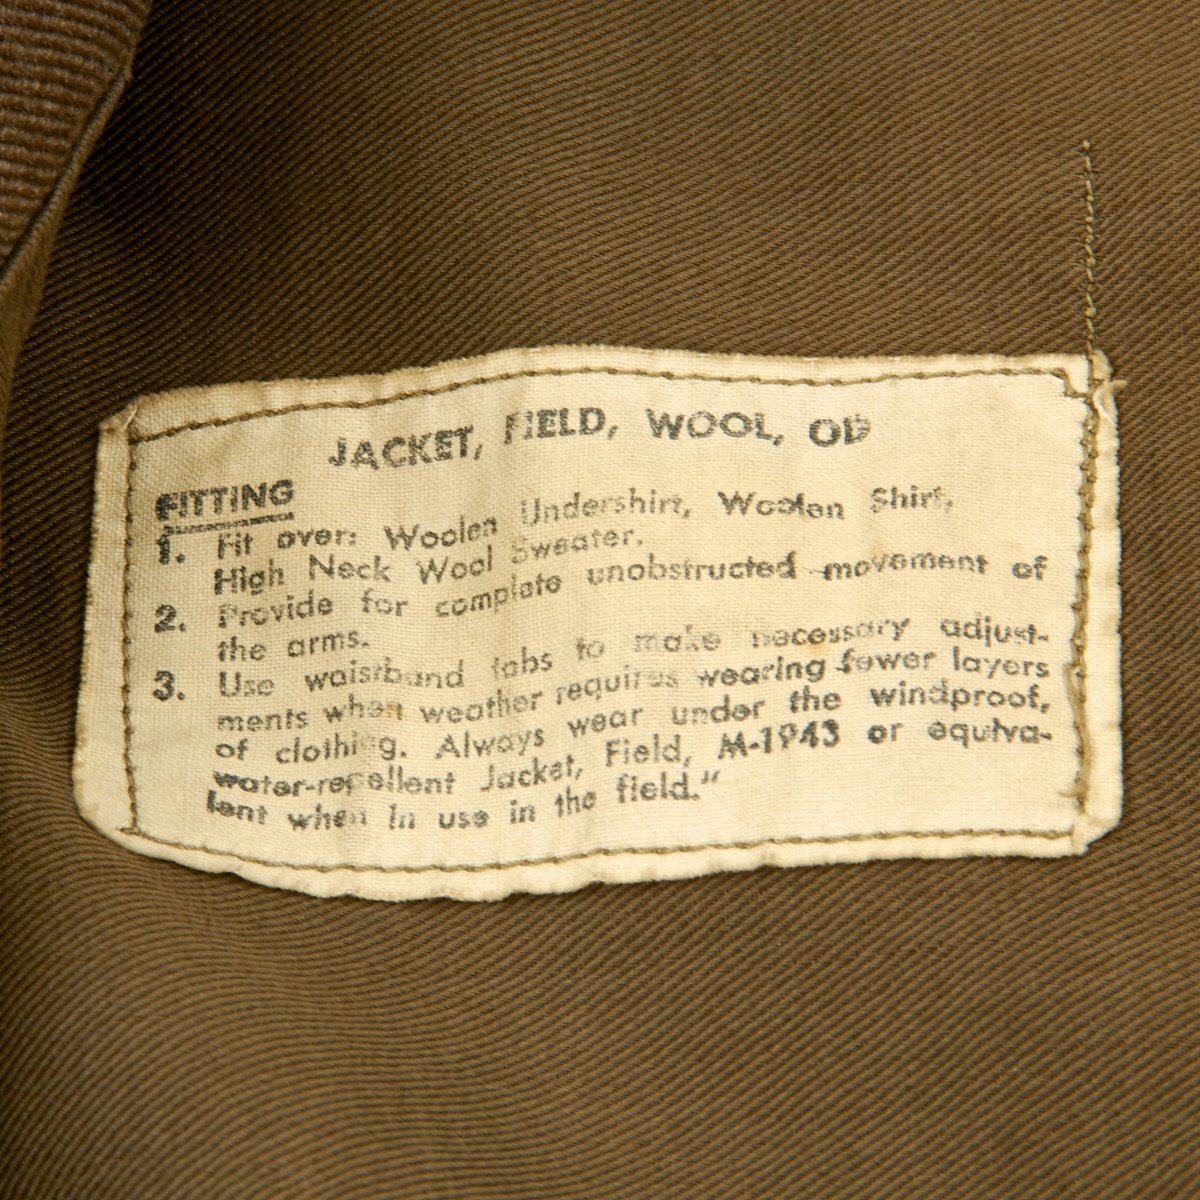 JACKET, FIELD, WOOL, OD
FITTING
1. Fit over: Woolen Undershirt, Woolen Shirt,
High Neck Wool Sweater.
2. Provide for complete unobstructed movement of
the arms.
3. Use waistband tabs to make necessary adjust-
ments when weather requires wearing fewer layers
of clothing. Always wear under the windproof,
water-repellent Jacket, Field, M-1943 or equiva-
lent when in use in the field."